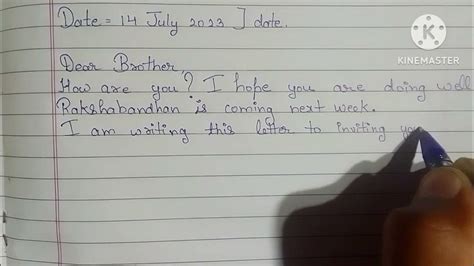 Date = 14 July 2023 ] date.
KINEMASTER
Dear Brother,
How are you? I hope you are doing well
Rakshabandhan is coming next week.
I am writing this letter to inviting you